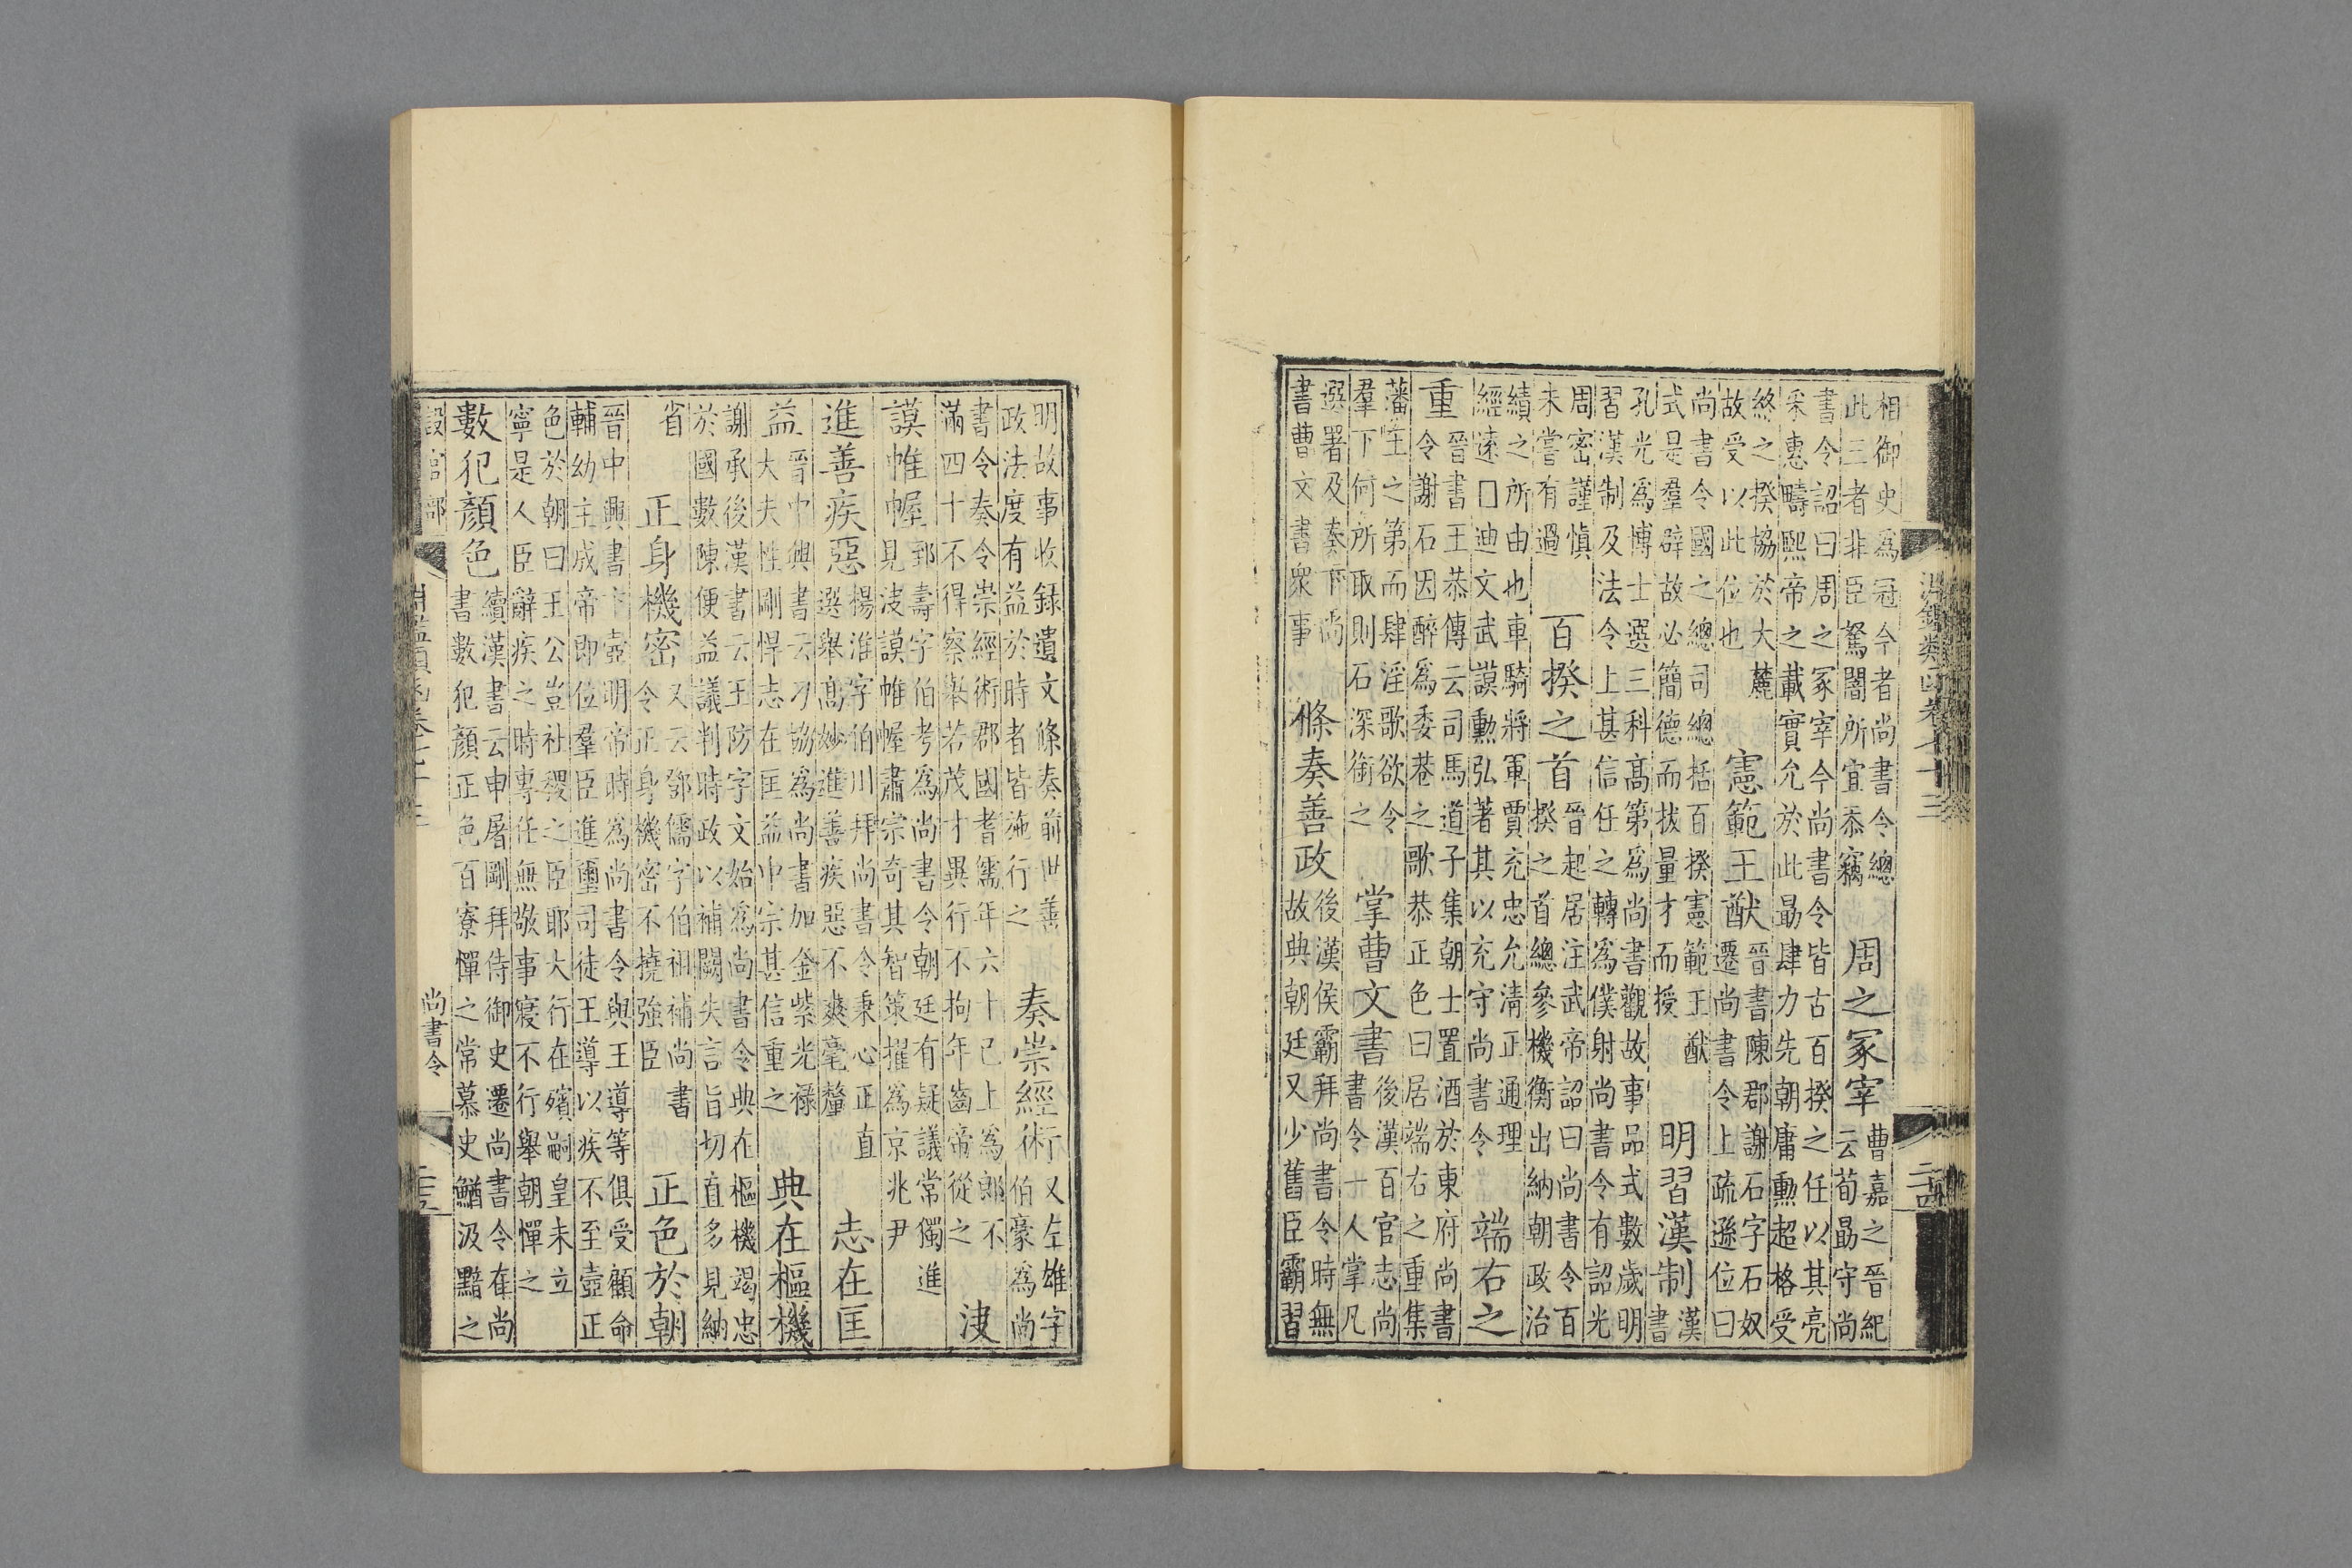 淵鑑類函卷七十三
二十四
相御史爲冠今者尚書令總
此三者非臣駑闇所宜忝竊
周之冢宰
曹嘉之晉紀
云荀勗守尚
書令詔曰周之冢宰今尚書令皆古百揆之任以其亮
采惠疇熙帝之載實允於此勗肆力先朝庸勲超格受
終之揆協於大麓
故受以此位也
憲範王猷
晉書陳郡謝石字石奴
遷尚書令上疏遜位曰
尚書令國之總司總括百揆憲範王猷
式是羣辟故必簡德而拔量才而授
明習漢制
漢
書
孔光爲博士選三科高第爲尚書觀故事品式數歲明
習漢制及法令上甚信任之轉爲僕射尚書令有詔光
周密謹慎
未嘗有過
百揆之首
晉起居注武帝詔曰尚書令百
揆之首總參機衡出納朝政治
績之所由也車騎將軍賈充忠允清正通理
經遠□迪文武謨勲弘著其以充守尚書令
端右之
重
晉書王恭傳云司馬道子集朝士置酒於東府尚書
令謝石因醉爲委巷之歌恭正色曰居端右之重集
藩王之第而肆淫歌欲令
羣下何所取則石深銜之
掌曹文書
後漢百官志尚
書令一人掌凡
選署及奏下尚
書曹文書衆事
條奏善政
後漢侯霸拜尚書令時無
故典朝廷又少舊臣霸習
明故事收録遺文條奏前世善
政法度有益於時者皆施行之
奏崇經術
又左雄字
伯豪爲尚
書令奏令崇經術郡國耆儒年六十已上爲郎不
滿四十不得察舉若茂才異行不拘年齒帝從之
浸
謨帷幄
郭壽字伯考爲尚書令朝廷有疑議常獨進
見浸謨帷幄肅宗奇其智策擢爲京兆尹
進善疾惡
楊淮字伯川拜尚書令秉心正直
選舉高妙進善疾惡不爽毫釐
志在匡
益
晉中興書云刁協爲尚書加金紫光祿
大夫性剛悍志在匡益中宗甚信重之
典在樞機
謝承後漢書云王防字文始爲尚書令典在樞機竭忠
於國數陳便益議判時政以補闕失言旨切直多見納
省
正身機密
又云郃儒字伯祖補尚書
令正身機密不撓強臣
正色於朝
晉中興書卞壺明帝時爲尚書令與王導等俱受顧命
輔幼主成帝即位羣臣進璽司徒王導以疾不至壺正
色於朝曰王公豈社稷之臣耶大行在殯嗣皇未立
寧是人臣辭疾之時專任無敬事寢不行舉朝憚之
數犯顏色
續漢書云申屠剛拜侍御史遷尚書令在尚
書數犯顏正色百寮憚之常慕史鰌汲黯之
設官部
淵鑑類函卷七十三
尚書令
二十五